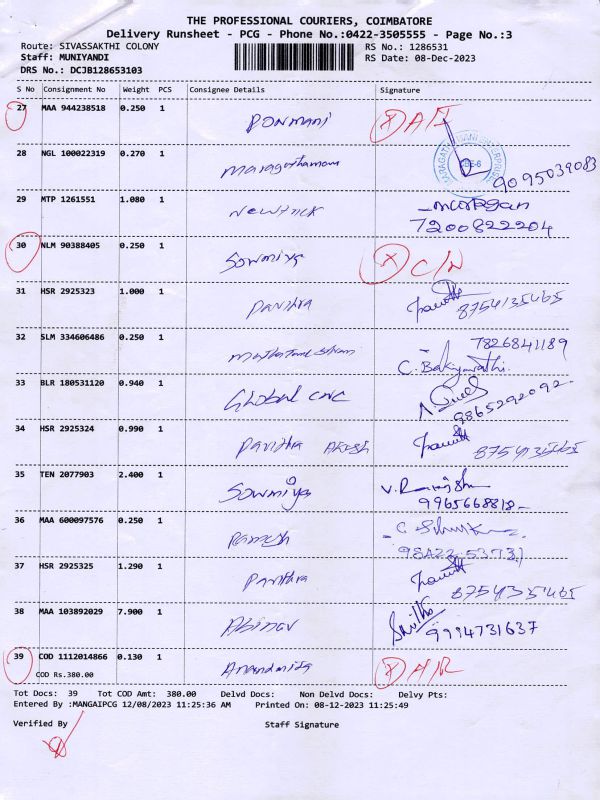 THE PROFESSIONAL COURIERS, COIMBATORE
Delivery Runsheet - PCG - Phone No.:0422-3505555 - Page No.:3
Route: SIVASSAKTHI COLONY RS No.: 1286531
Staff: MUNIYANDI RS Date: 08-Dec-2023
DRS No.: DCJB128653103
S No Consignment No Weight PCS Consignee Details Signature
27 MAA 944238518 0.250 1 Ponmani
28 NGL 100022319 0.270 1 Maragathamani 9095039083
29 MTP 1261551 1.080 1 Murugan
7200822204
30 NLM 90388405 0.250 1 Sowmiya
31 HSR 2925323 1.000 1 Pavithra 8754135465
32 SLM 334606486 0.250 1 7826841189
C. Bakiyarathi.
33 BLR 180531120 0.940 1 Global CNC 9865292092.
34 HSR 2925324 0.990 1 Pavithra 8754135465
35 TEN 2077903 2.400 1 Sowmiya
9965668818
36 MAA 600097576 0.250 1 Ramesh
37 HSR 2925325 1.290 1 Pavithra 8754135465
38 MAA 103892029 7.900 1 Abinav 9994731637
39 COD 1112014866 0.130 1
COD Rs.380.00
Tot Docs: 39 Tot COD Amt: 380.00 Delvd Docs: Non Delvd Docs: Delvy Pts:
Entered By :MANGAIPCG 12/08/2023 11:25:36 AM Printed On: 08-12-2023 11:25:49
Verified By Staff Signature